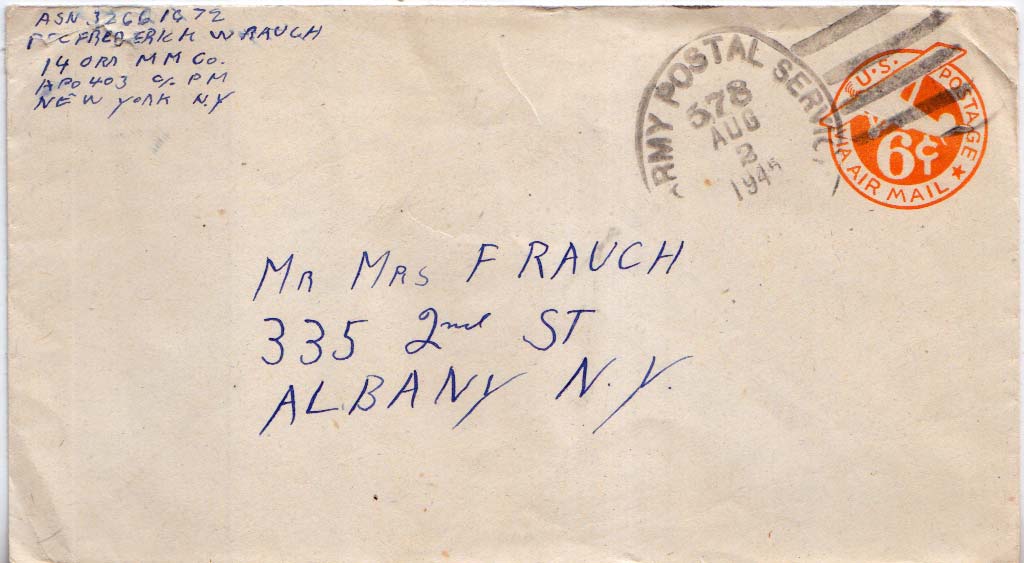 ASN 32661672
PFC FREDERICK W RAUCH
14 ORD M M Co.
APO 403 c/o P M
NEW YORK N.Y
ARMY POSTAL SERVICE
578
AUG
2
1945
U.S. POSTAGE
VIA AIR MAIL
6¢
MR MRS F RAUCH
335 2nd ST
ALBANY N.Y.